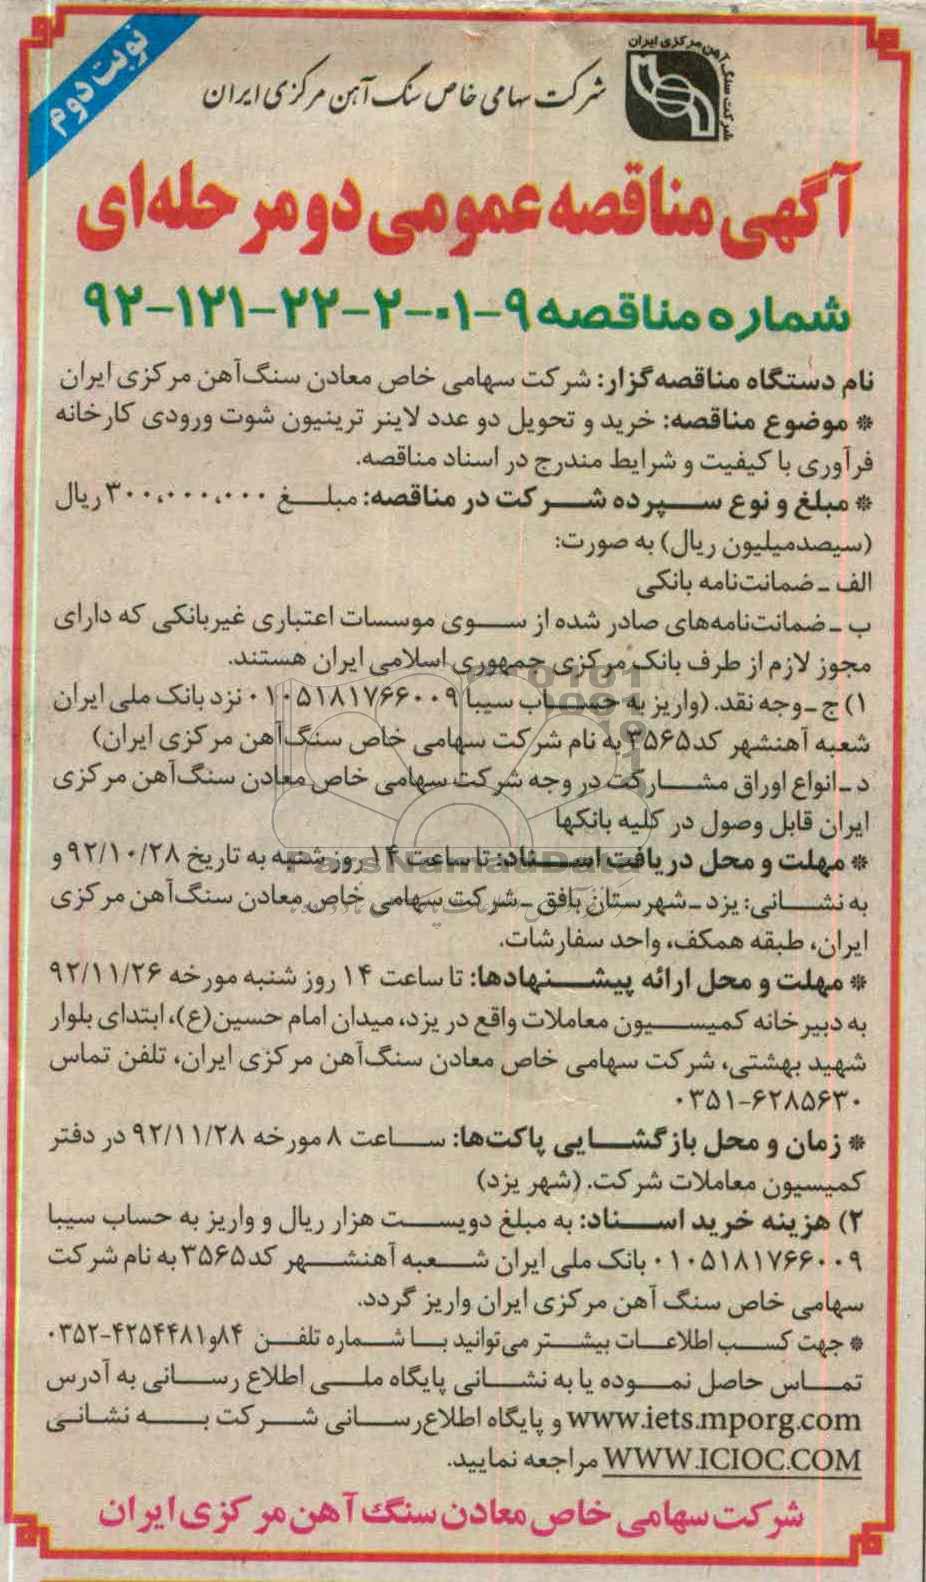 نوبت دوم
شرکت سنگ آهن مرکزی ایران
شرکت سهامی خاص سنگ آهن مرکزی ایران
آگهی مناقصه عمومی دو مرحله‌ای
شماره مناقصه ۹-۰۱-۲-۲۲-۱۲۱-۹۲
نام دستگاه مناقصه‌گزار: شرکت سهامی خاص معادن سنگ‌آهن مرکزی ایران
* موضوع مناقصه: خرید و تحویل دو عدد لاینر ترینیون شوت ورودی کارخانه
فرآوری با کیفیت و شرایط مندرج در اسناد مناقصه.
* مبلغ و نوع سپرده شرکت در مناقصه: مبلغ ۳۰۰،۰۰۰،۰۰۰ ریال
(سیصدمیلیون ریال) به صورت:
الف ـ ضمانت‌نامه بانکی
ب ـ ضمانت‌نامه‌های صادر شده از سوی موسسات اعتباری غیربانکی که دارای
مجوز لازم از طرف بانک مرکزی جمهوری اسلامی ایران هستند.
۱) ج ـ وجه نقد. (واریز به حساب سیبا ۰۱۰۵۱۸۱۷۶۶۰۰۹ نزد بانک ملی ایران
شعبه آهنشهر کد ۳۵۶۵ به نام شرکت سهامی خاص سنگ‌آهن مرکزی ایران)
د ـ انواع اوراق مشارکت در وجه شرکت سهامی خاص معادن سنگ‌آهن مرکزی
ایران قابل وصول در کلیه بانکها
* مهلت و محل دریافت اسناد: تا ساعت ۱۴ روز شنبه به تاریخ ۹۲/۱۰/۲۸ و
به نشانی: یزد ـ شهرستان بافق ـ شرکت سهامی خاص معادن سنگ‌آهن مرکزی
ایران، طبقه همکف، واحد سفارشات.
* مهلت و محل ارائه پیشنهادها: تا ساعت ۱۴ روز شنبه مورخه ۹۲/۱۱/۲۶
به دبیرخانه کمیسیون معاملات واقع در یزد، میدان امام حسین(ع)، ابتدای بلوار
شهید بهشتی، شرکت سهامی خاص معادن سنگ‌آهن مرکزی ایران، تلفن تماس
۰۳۵۱-۶۲۸۵۶۳۰
* زمان و محل بازگشایی پاکت‌ها: ساعت ۸ مورخه ۹۲/۱۱/۲۸ در دفتر
کمیسیون معاملات شرکت. (شهر یزد)
۲) هزینه خرید اسناد: به مبلغ دویست هزار ریال و واریز به حساب سیبا
۰۱۰۵۱۸۱۷۶۶۰۰۹ بانک ملی ایران شعبه آهنشهر کد ۳۵۶۵ به نام شرکت
سهامی خاص سنگ آهن مرکزی ایران واریز گردد.
* جهت کسب اطلاعات بیشتر می‌توانید با شماره تلفن ۸۴و۴۲۵۴۴۸۱-۰۳۵۲
تماس حاصل نموده یا به نشانی پایگاه ملی اطلاع رسانی به آدرس
www.iets.mporg.com و پایگاه اطلاع‌رسانی شرکت به نشانی
WWW.ICIOC.COM مراجعه نمایید.
شرکت سهامی خاص معادن سنگ آهن مرکزی ایران
ParsNamadData